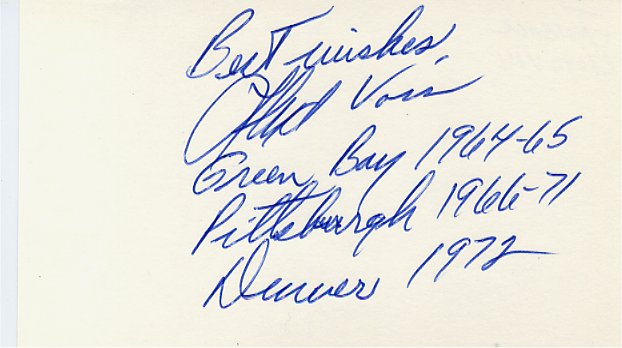 Best wishes,
Lloyd Voss
Green Bay 1964-65
Pittsburgh 1966-71
Denver 1972